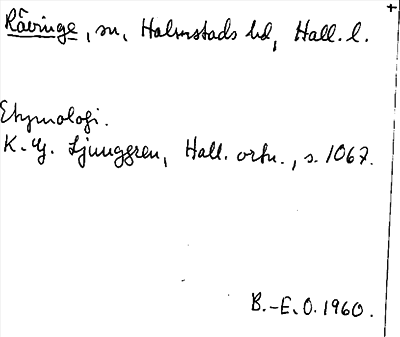 Råvinge, sn, Halmstads hd, Hall. l.
Etymologi.
K. G. Ljunggren, Hall. ortn., s. 1067.
B.-E. O. 1960.